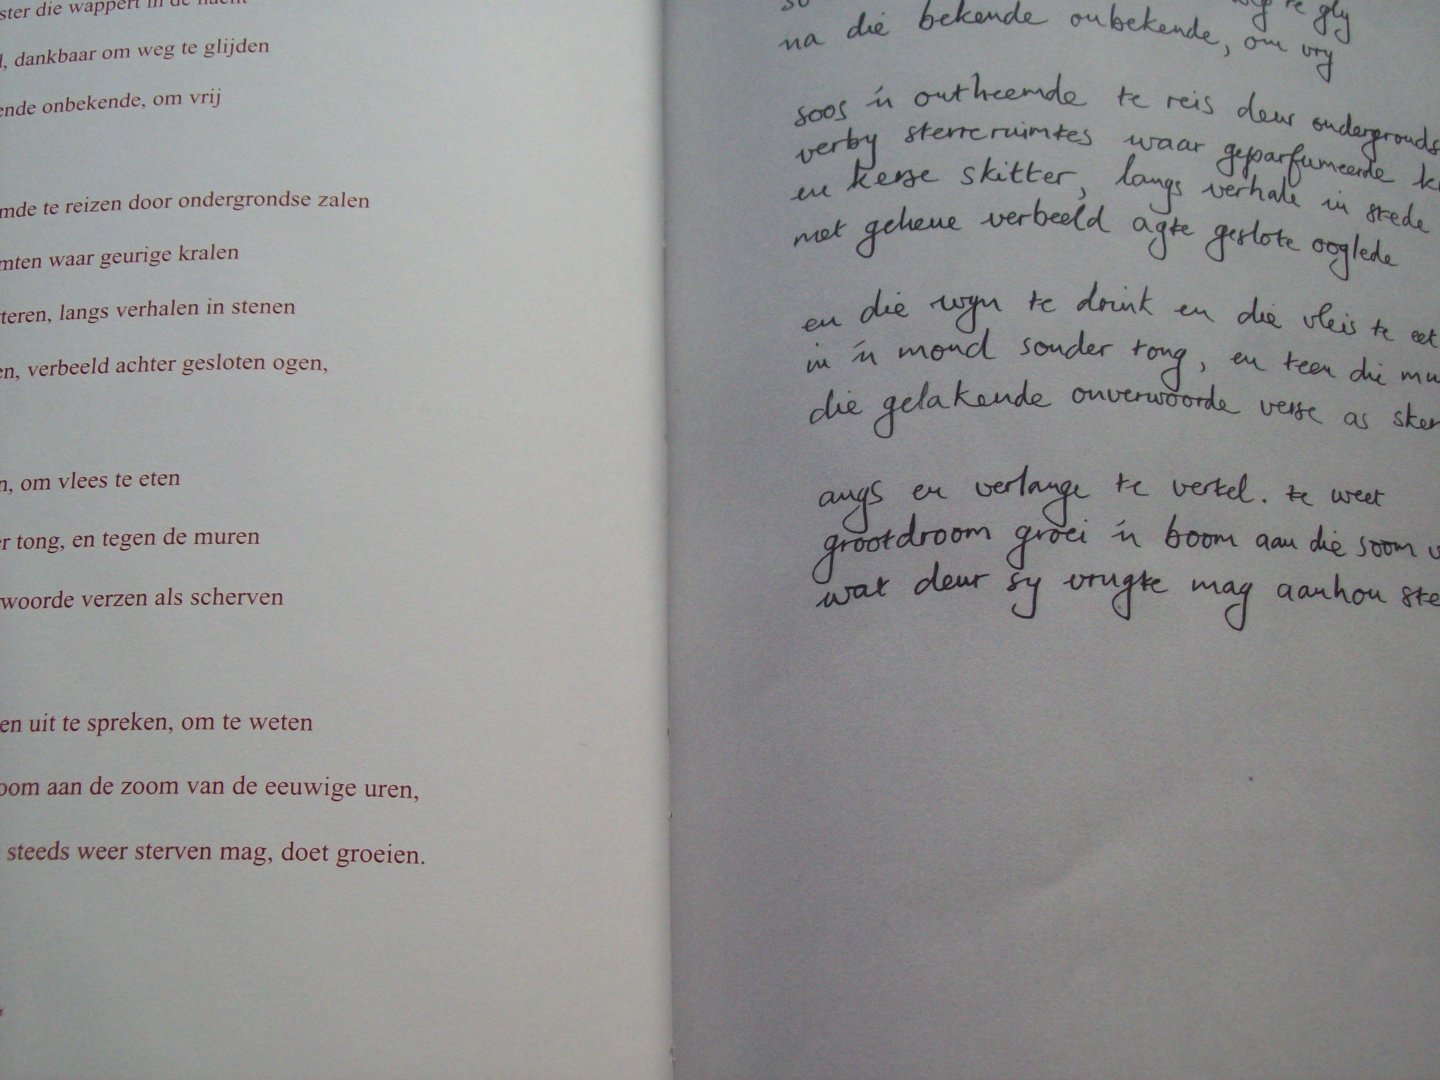 ster die wappert in de nacht
, dankbaar om weg te glijden
ende onbekende, om vrij
mde te reizen door ondergrondse zalen
mten waar geurige kralen
teren, langs verhalen in stenen
en, verbeeld achter gesloten ogen,
n, om vlees te eten
r tong, en tegen de muren
woorde verzen als scherven
en uit te spreken, om te weten
oom aan de zoom van de eeuwige uren,
steeds weer sterven mag, doet groeien.
so te gly
na die bekende onbekende, om vry
soos 'n ontheemde te reis deur ondergronds
verby sterreruimtes waar geparfumeerde k
en kerse skitter, langs verhale in stede
met geheue verbeeld agte geslote ooglede
en die wyn te drink en die vleis te eet
in 'n mond sonder tong, en teen die mu
die gelakende onverwoorde verse as sker
angs en verlange te vertel. te weet
grootdroom groei 'n boom aan die soom v
wat deur sy vrugte mag aanhou ste